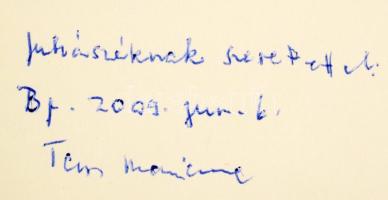 Juhászéknak szeretettel.
Bp. 2009. jun. 6.